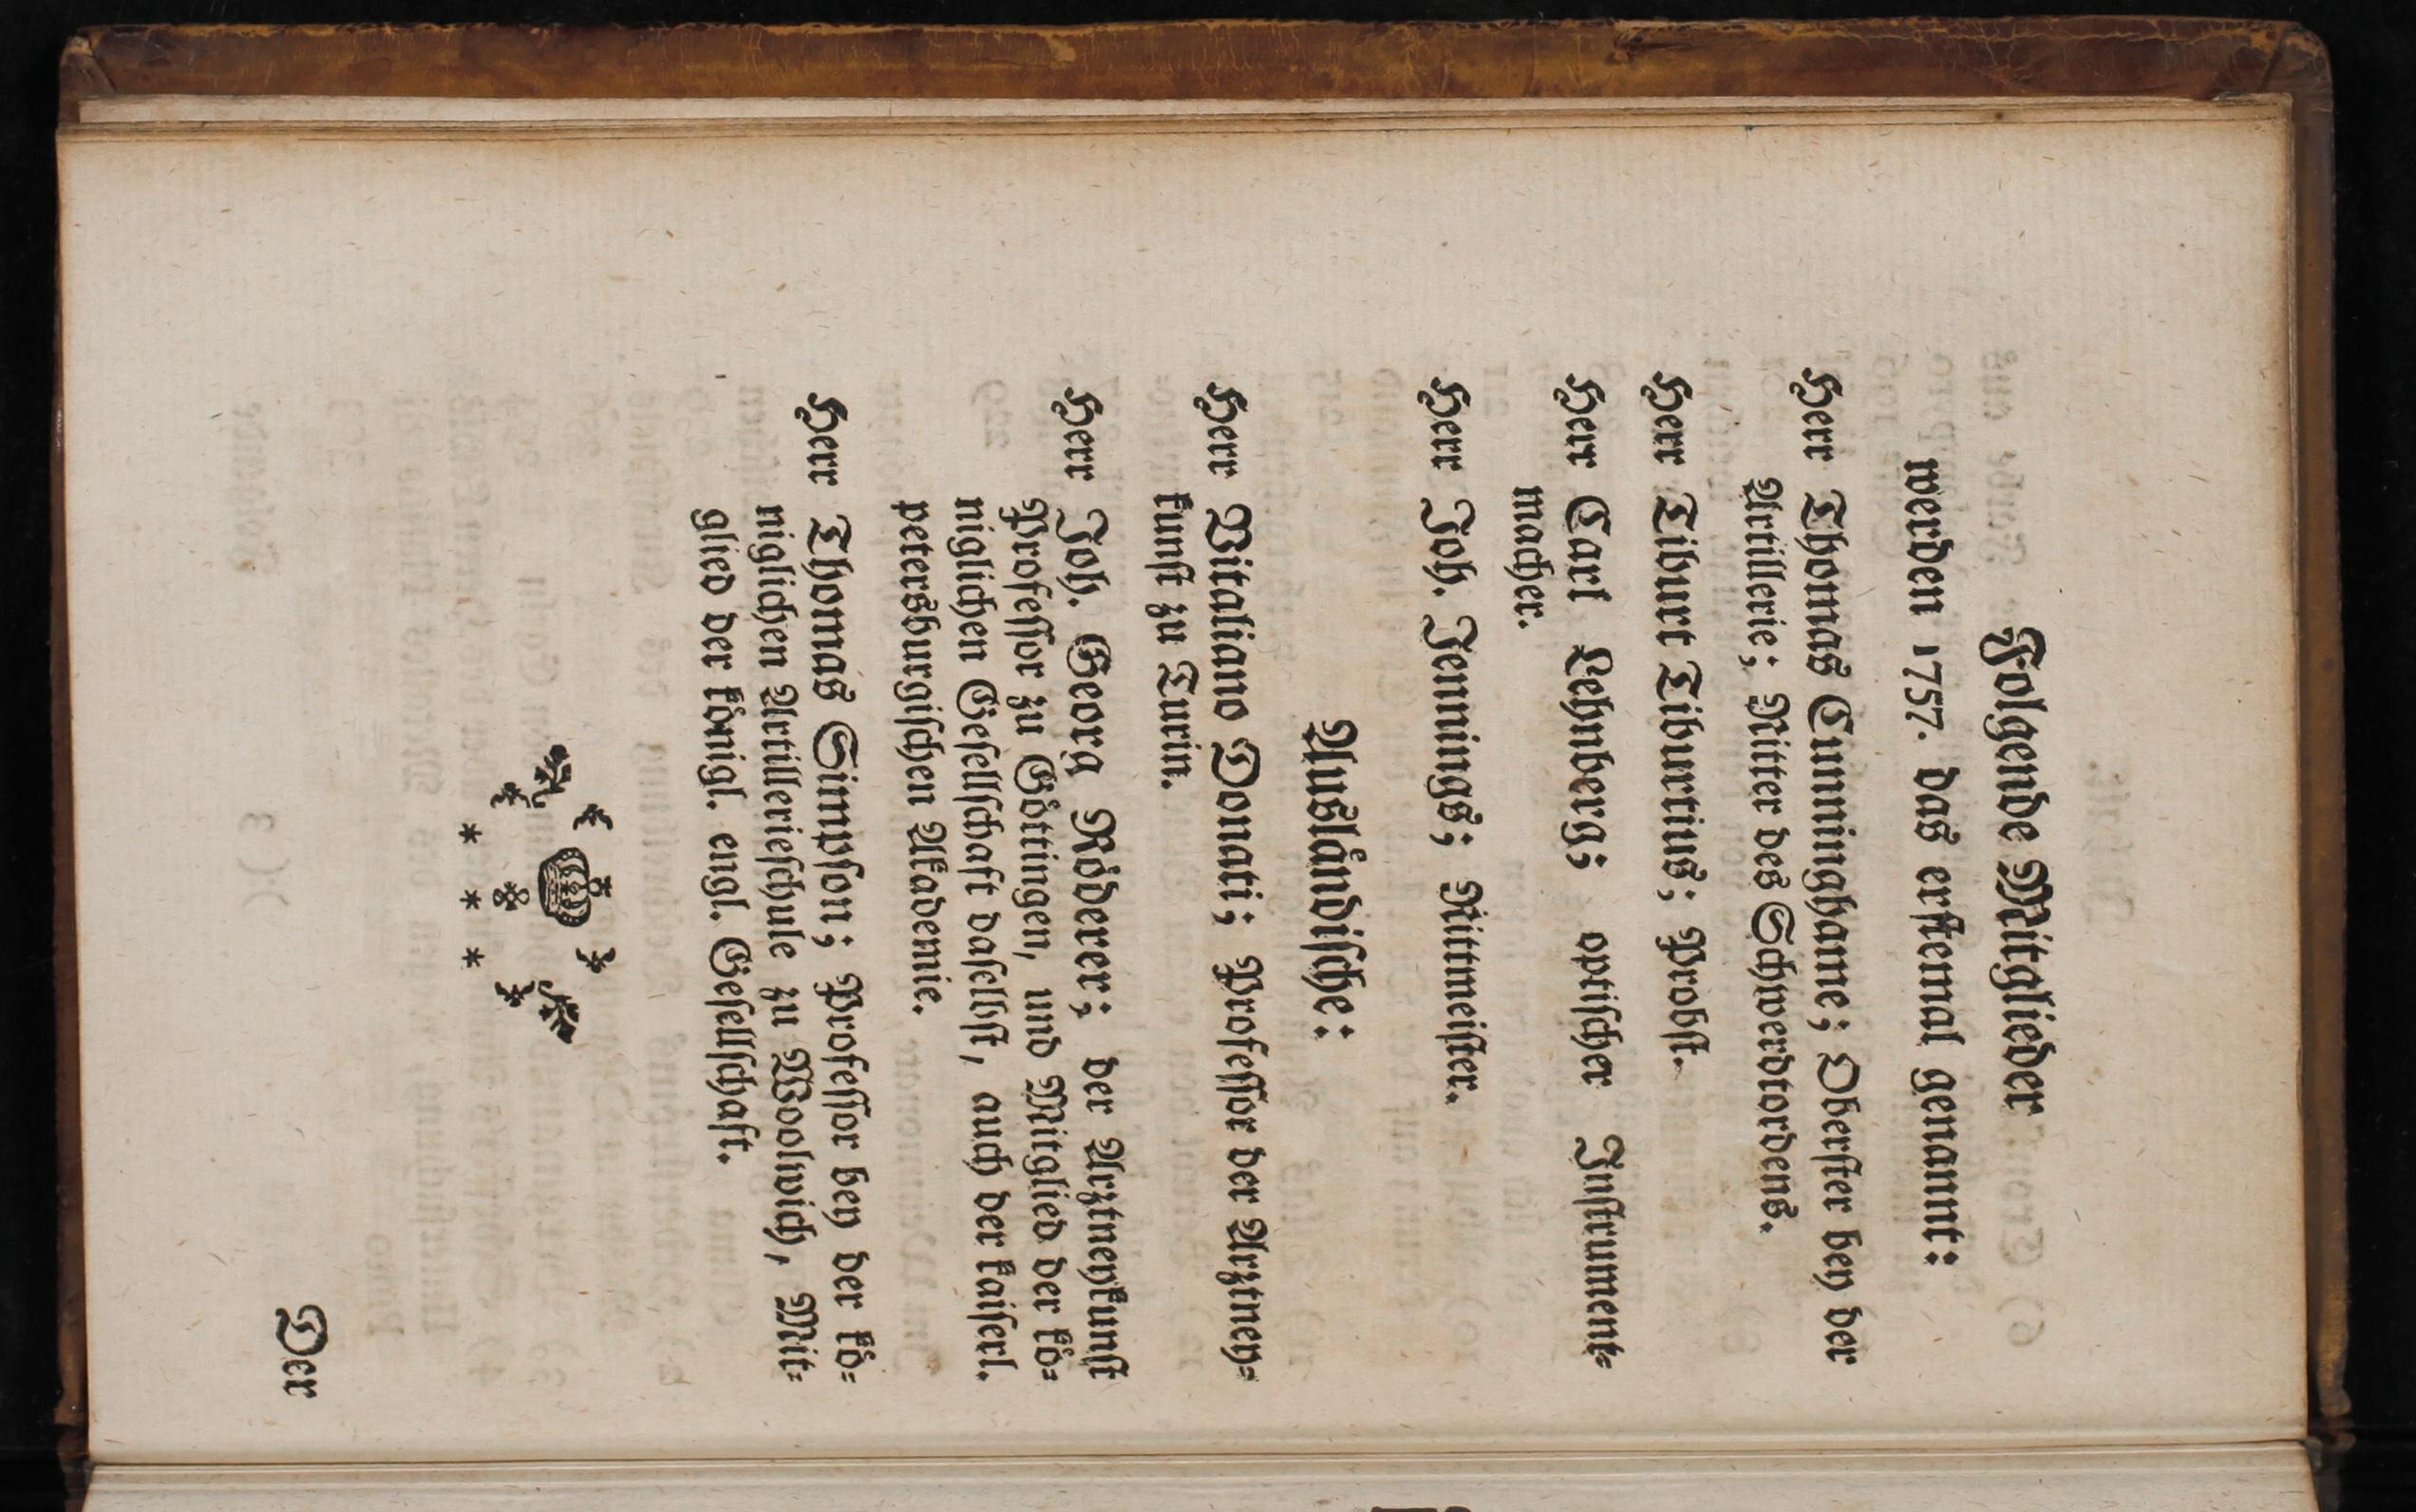 Folgende Mitglieder
werden 1757. das erſtemal genannt:
Herr Thomas Cunninghame; Oberſter bey der
Artillerie; Ritter des Schwerdtordens.
Herr Tiburt Tiburtius; Probſt.
Herr Carl Lehnberg; optiſcher Inſtrument-
macher.
Herr Joh. Jennings; Rittmeiſter.
Ausländiſche:
Herr Vitaliano Donati; Profeſſor der Arztney-
kunſt zu Turin.
Herr Joh. Georg Röderer; der Arztneykunſt
Profeſſor zu Göttingen, und Mitglied der kö-
niglichen Geſellſchaft daſelbſt, auch der kaiſerl.
petersburgiſchen Akademie.
Herr Thomas Simpſon; Profeſſor bey der kö-
niglichen Artillerieſchule zu Woolwich, Mit-
glied der königl. engl. Geſellſchaft.
* * *
Der